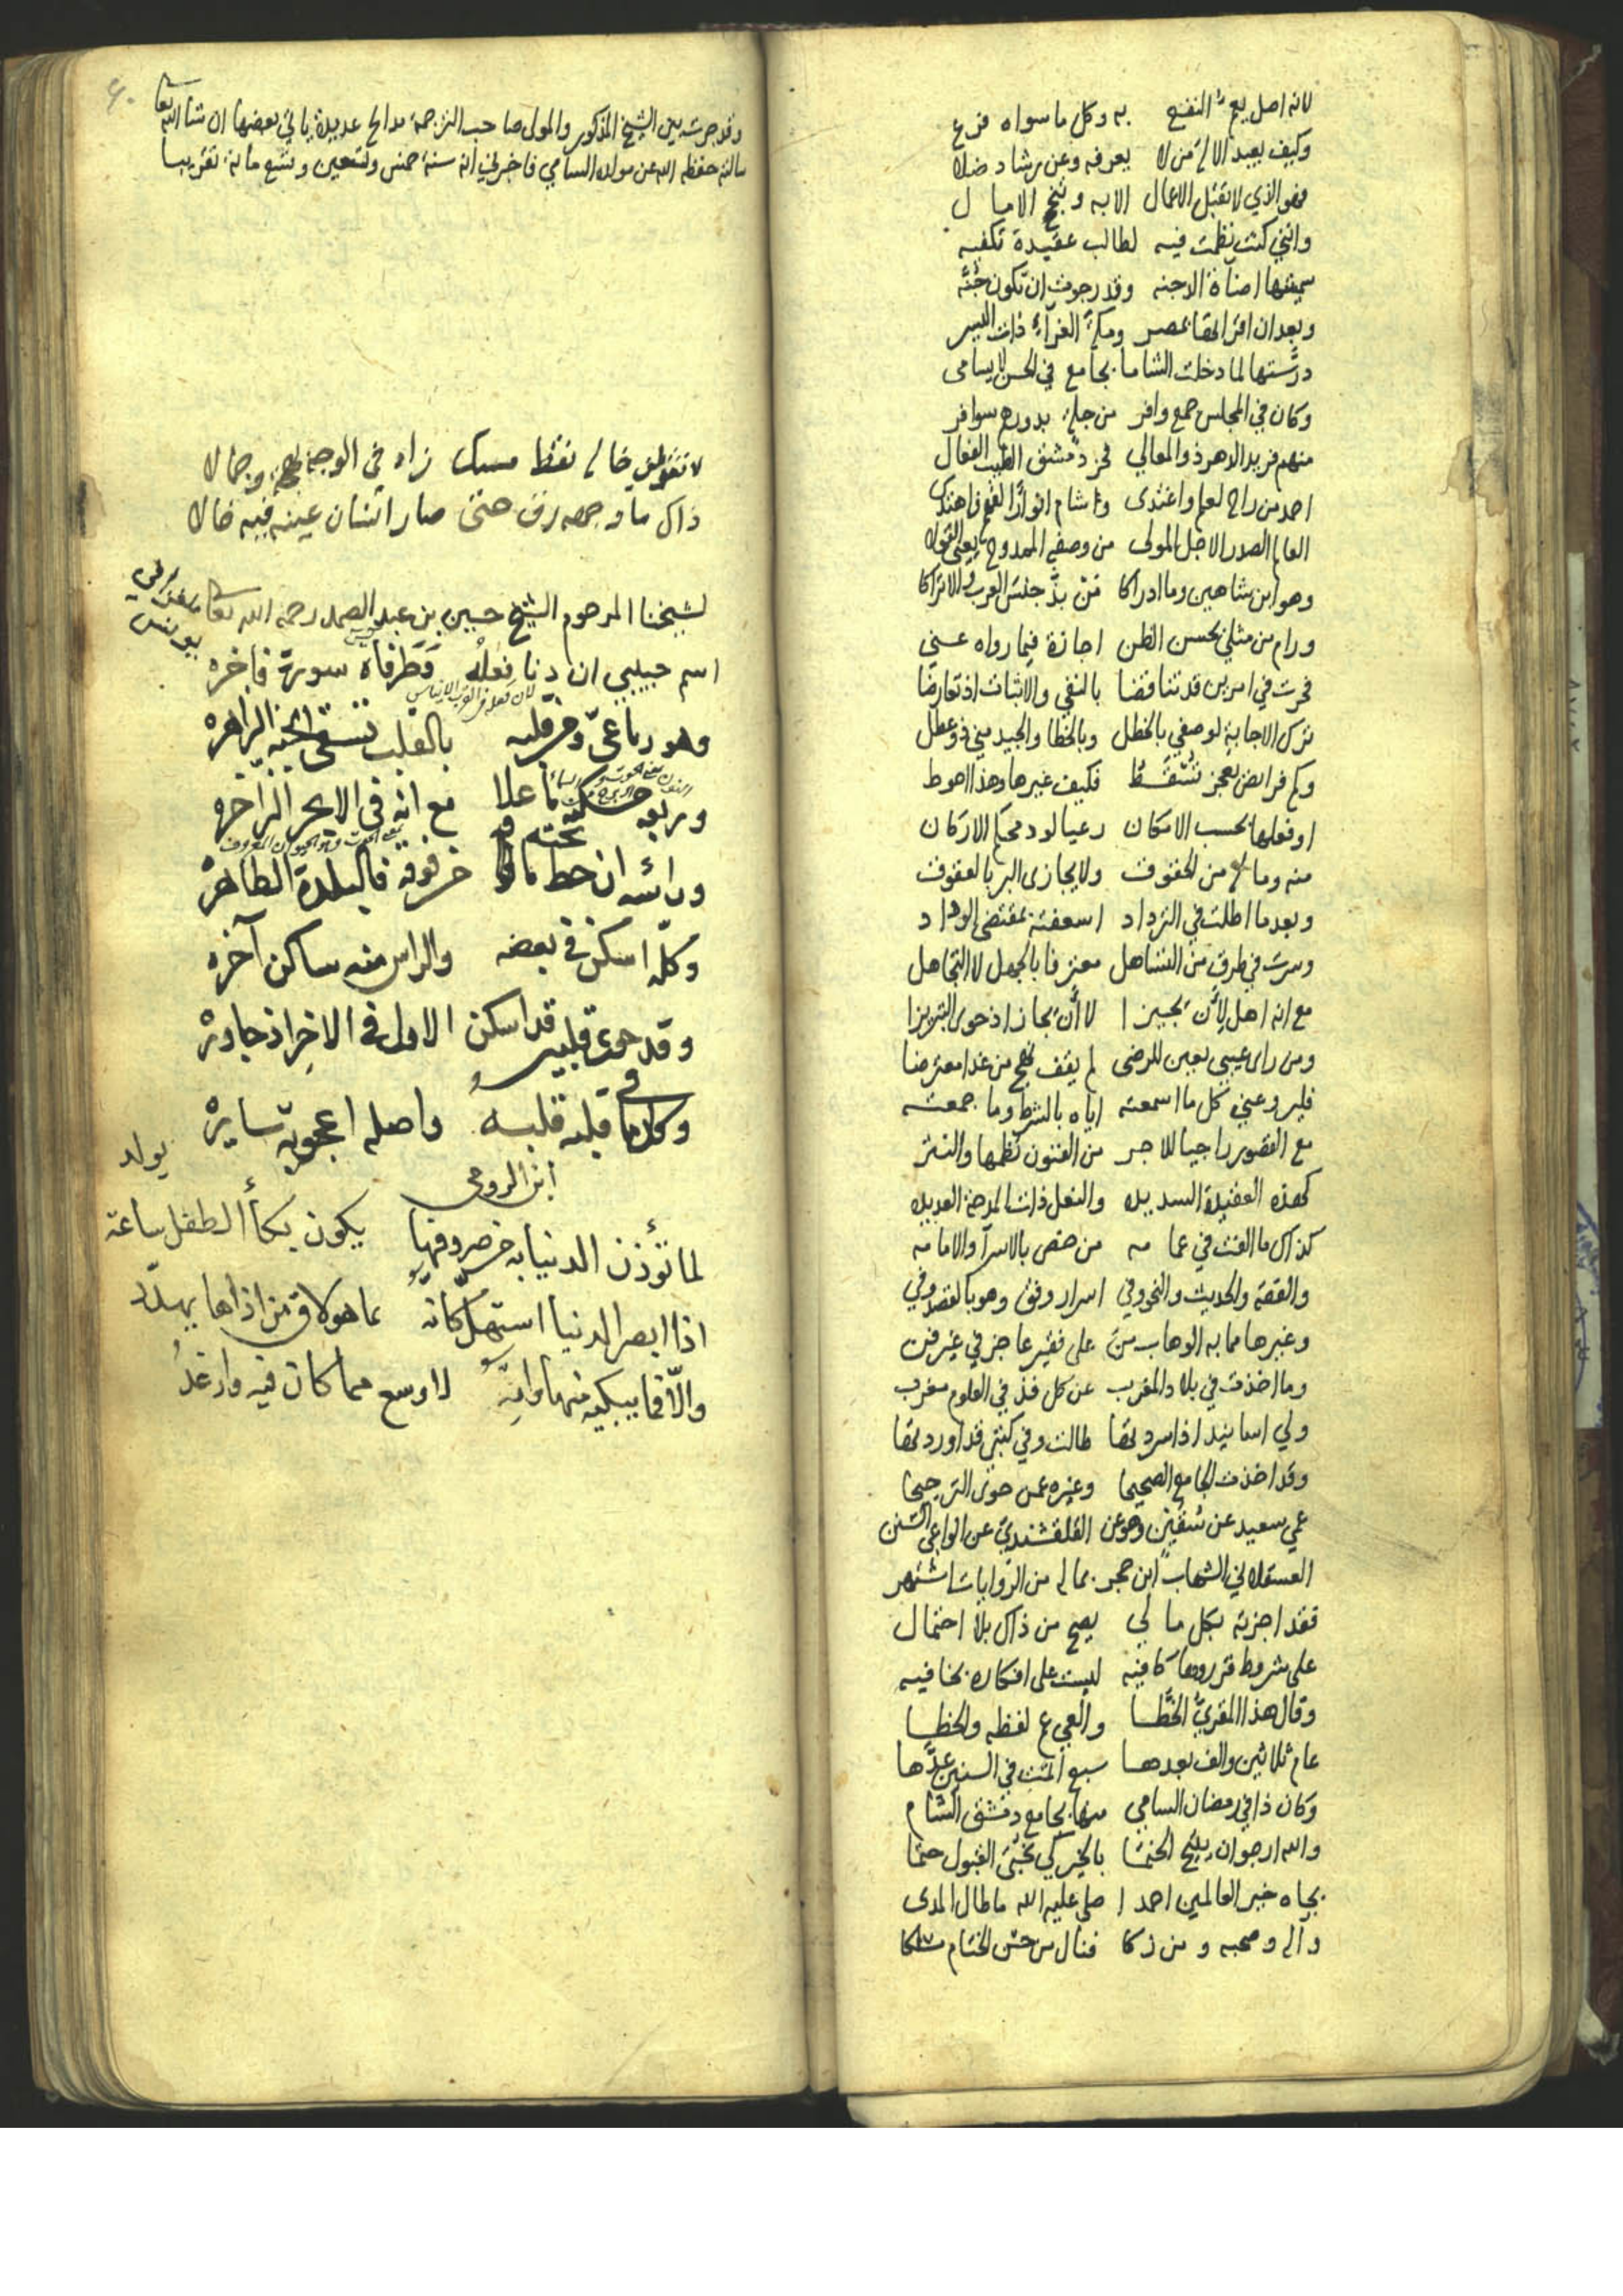 لانه اصل يعم النفع به وكل ما سواه فرع
وكيف يعبد الاله من لا يعرفه وعن رشاد ضلا
فهو الذي لا تقبل الاعمال الا به وتنجح الامال
وانني كنت نظمت فيه لطالب عقيدة تكفيه
سميتها اضاءة الدجنه وقد رجوت ان تكون جُنَّه
وبعد ان اقراتها بمصر ومكة الغرّاء ذات اليسر
درَّستها لما دخلت الشاما بجامع في الحسن لا يسامى
وكان في المجلس جمع وافر من جلة بدورهم سوافر
منهم فريد الدهر ذو المعالي فخر دمشق الطيب الفعال
احمد من راح لعلم واغتدى وشام انوار الفهم فاهتدى
العالم الصدر الاجل المولى من وصفه الممدوح يعيي القولا
وهو ابن شاهين وما ادراكا من بذّ جنس العرب والاتراكا
ورام من مثلي بحسن الظن اجازة فيما رواه عني
فحرت في امرين قد تناقضا بالنفي والاثبات اذ تعارضا
ترك الاجابة لوصفي بالخطل وبالخطا والجيد مني ذو عطل
وكم فرائض بعجز تسقط فكيف غيرها وهذا احوط
او فعلها بحسب الامكان رعيا لود محكم الاركان
منه وما له من الحقوق ولا يجازى البر بالعقوق
وبعد ما اطلت في الترداد اسعفته بمقتضى الوداد
وسرت في طرق من التساهل معترفا بالجهل لا التجاهل
مع انه اهل لأن يجيزا لا أن يجاز اذ حوى التبريزا
ومن راى عيبي بعين للرضى لم يقف نهج من غدا معترضا
فليرو عني كل ما اسمعته اياه بالشرط وما جمعته
مع القصور راجيا للاجر من الفنون نظمها والنثر
كهذه العقيدة السديده والنعل ذات المدحة العديده
كذاك ما الفت في عمامه من خص بالاسراء والامامه
والفقه والحديث والنحو وفي اسرار وفق وهو بالقصد وفي
وغيرها مما به الوهاب من على فقير عاجز في غير فن
وما اخذت في بلاد المغرب عن كل فذ في العلوم مغرب
ولي اسانيد اذا سردتها طالت وفي كتبي قد اوردتها
وقد اخذت الجامع الصحيحا وغيره عمن حوى الترجيحا
عمي سعيد عن سُقين وهو عن القلقشندي عن الواعي السنن
العسقلاني الشهاب ابن حجر بما له من الروايات اشتهر
فقد اجزته بكل ما لي يصح من ذاك بلا احتمال
على شروط قرروها كافيه ليست على افكاره بخافيه
وقال هذا المقريّ الخَطّا والعي عم لفظه والخطا
عام ثلاثين والف بعدها سبع اتمت في السنين عدّها
وكان ذا في رمضان السامي منها بجامع دمشق الشام
والله ارجو ان يتيح الختما بالخير كي نجنى القبول حتما
بجاه خير العالمين احمدا صلى عليه الله ما طال المدى
وآله وصحبه ومن زكا فنال من حسن الختام مسكا
وقد جرت بين الشيخ المذكور والمولى صاحب الترجمة مدائح عديدة ياتي بعضها ان شاء الله تعالى
سالته حفظه الله عن مولده السامي فاخبرني انه سنة خمس وتسعين وتسع مائة تقريبا
لا تقولن خاله نقط مسك زاد في الوجنة بهجة وجمالا
ذاك ما وجهه رق حتى صار انسان عينه فيه خالا
لشيخنا المرحوم الشيخ حسين بن عبد الصمد رحمه الله تعالى ملغزا في يونس
اسم حبيبي ان دنا فعله فطرفاه سورة فاخره
وهو رباعيّ وفي قلبه بالقلب تسقى الجنة الزاهره
وربعه حكمه ما علا مع انه في الابحر الزاخره
وراسه ان حط من فوقه فالبلدة الطاهرة
وكلّه اسكن في بعضه والراس منه ساكن آخره
وقد حوى قلبي قد اسكن الاول في الاخر اذ جاوره
وكل ما في قلبه قلبه واصله اعجوبة سايره
ابن الرومي
لما تؤذن الدنيا به من صروفها يكون بكاء الطفل ساعة يولد
اذا ابصر الدنيا استهل كانه بما هو لاق من اذاها يهدّد
والّا فما يبكيه منها وانه لاوسع مما كان فيه وارغدُ